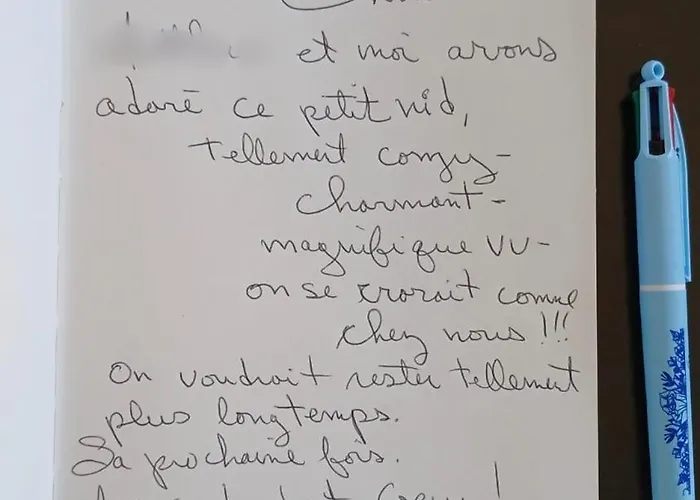 et moi avons
adoré ce petit nid,
tellement comzy-
charmant-
magnifique vu-
on se croirait comme
chez nous !!!
On voudrait rester tellement
plus longtemps.
La prochaine fois.